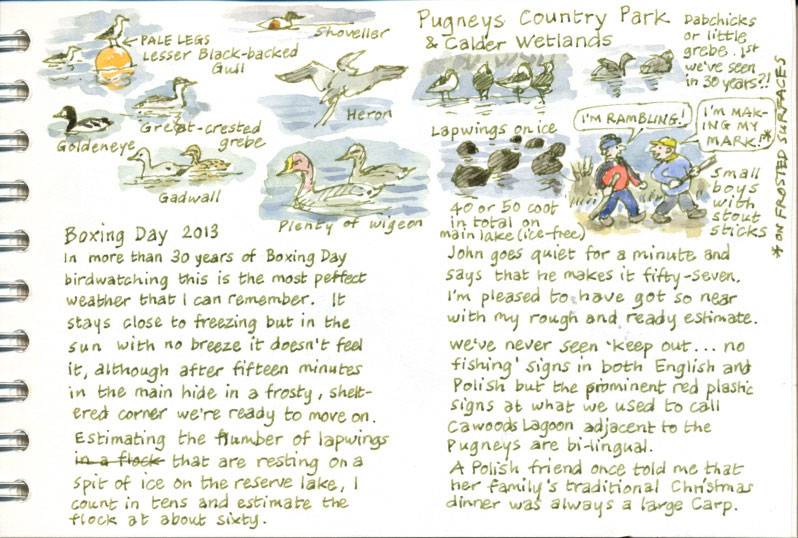 Pugneys Country Park
& Calder Wetlands
PALE LEGS
Lesser Black-backed
Gull
Shoveller
Goldeneye
Great-crested
grebe
Heron
Gadwall
Plenty of wigeon
Dabchicks
or little
grebe. 1st
we've seen
in 30 years?!
Lapwings on ice
40 or 50 coot
in total on
main lake (ice-free)
I'M RAMBLING!
I'M MAK-
ING MY
MARK!*
small
boys
with
stout
sticks
* ON FROSTED SURFACES
Boxing Day 2013
In more than 30 years of Boxing Day
birdwatching this is the most perfect
weather that I can remember. It
stays close to freezing but in the
sun with no breeze it doesn't feel
it, although after fifteen minutes
in the main hide in a frosty, shelt-
ered corner we're ready to move on.
Estimating the number of lapwings
in a flock that are resting on a
spit of ice on the reserve lake, I
count in tens and estimate the
flock at about sixty.
John goes quiet for a minute and
says that he makes it fifty-seven.
I'm pleased to have got so near
with my rough and ready estimate.
We've never seen 'keep out... no
fishing' signs in both English and
Polish but the prominent red plastic
signs at what we used to call
Cawoods Lagoon adjacent to the
Pugneys are bi-lingual.
A Polish friend once told me that
her family's traditional Christmas
dinner was always a large Carp.